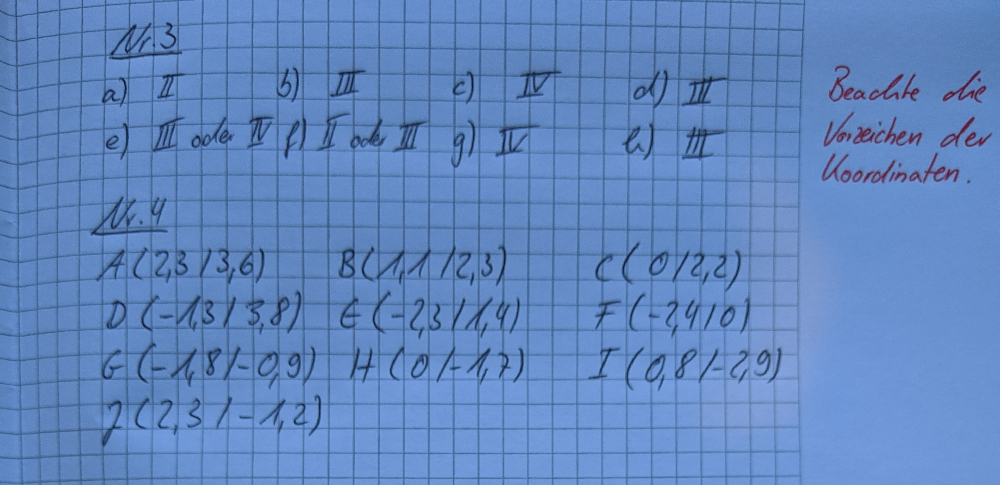 Nr. 3
a) II b) III c) IV d) III
e) III oder IV f) II oder III g) IV h) III
Beachte die
Vorzeichen der
Koordinaten.
Nr. 4
A(2,3/3,6) B(1,1/2,3) C(0/2,2)
D(-1,3/3,8) E(-2,3/1,4) F(-2,4/0)
G(-1,8/-0,9) H(0/-1,7) I(0,8/-2,9)
J(2,3/-1,2)